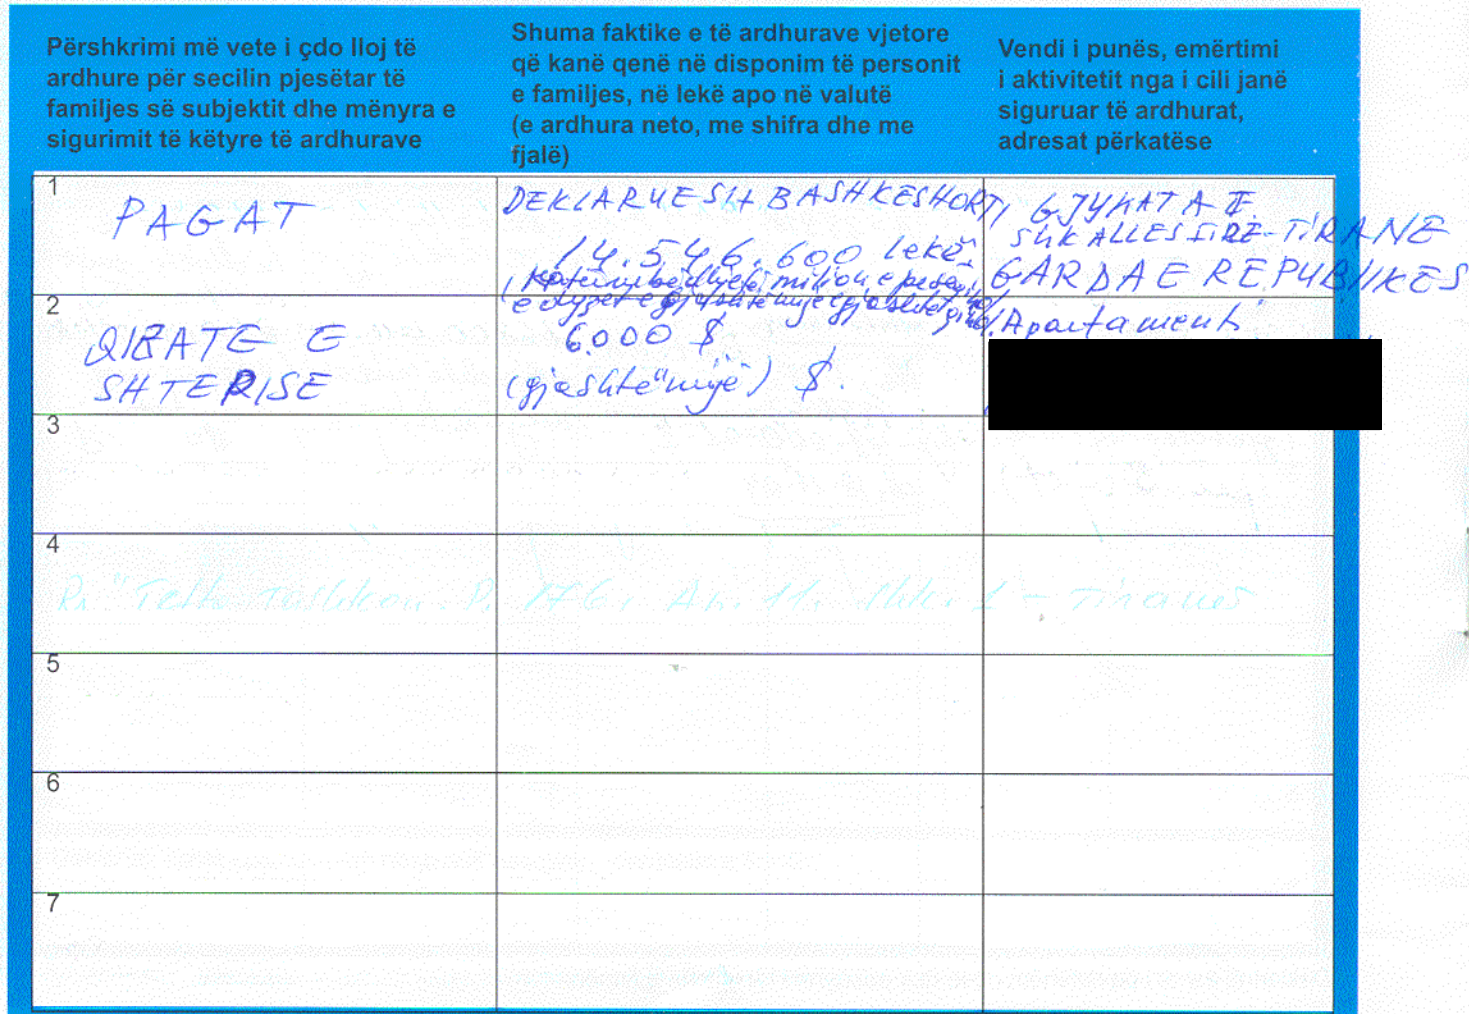 Përshkrimi më vete i çdo lloj të
ardhure për secilin pjesëtar të
familjes së subjektit dhe mënyra e
sigurimit të këtyre të ardhurave
Shuma faktike e të ardhurave vjetore
që kanë qenë në disponim të personit
e familjes, në lekë apo në valutë
(e ardhura neto, me shifra dhe me
fjalë)
Vendi i punës, emërtimi
i aktivitetit nga i cili janë
siguruar të ardhurat,
adresat përkatëse
1
PAGAT
DEKLARUESI+BASHKESHORTI
14.546.600 lekë.
(Katërmbëdhjetë milion e pesëqind
e dyzet e gjashtë mije e gjashtëqind)
GJYKATA E
SHKALLES SIRE-TIRANE
GARDA E REPUBLIKES
2
QIRATE E
SHTEPISE
6.000 $
(gjashtë mijë) $.
Apartament
3
4
176, Ap. 11, shk. 1 - Tiranë
5
6
7